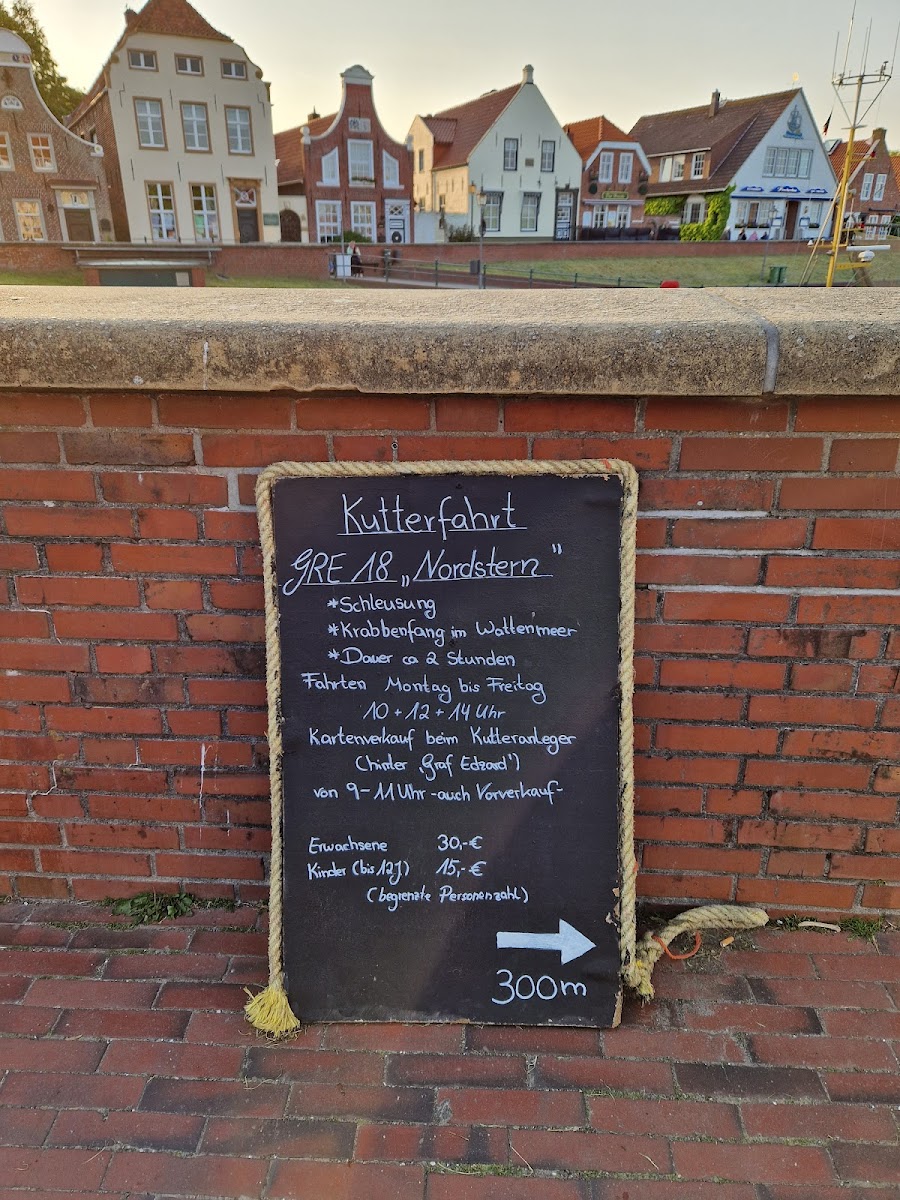 Kutterfahrt
GRE 18 „Nordstern"
*Schleusung
*Krabbenfang im Wattenmeer
*Dauer ca 2 Stunden
Fahrten Montag bis Freitag
10 + 12 + 14 Uhr
Kartenverkauf beim Kutteranleger
(hinter ,Graf Edzard')
von 9-11 Uhr -auch Vorverkauf-
Erwachsene 30,-€
Kinder (bis 12J) 15,-€
(begrenzte Personenzahl)
300m